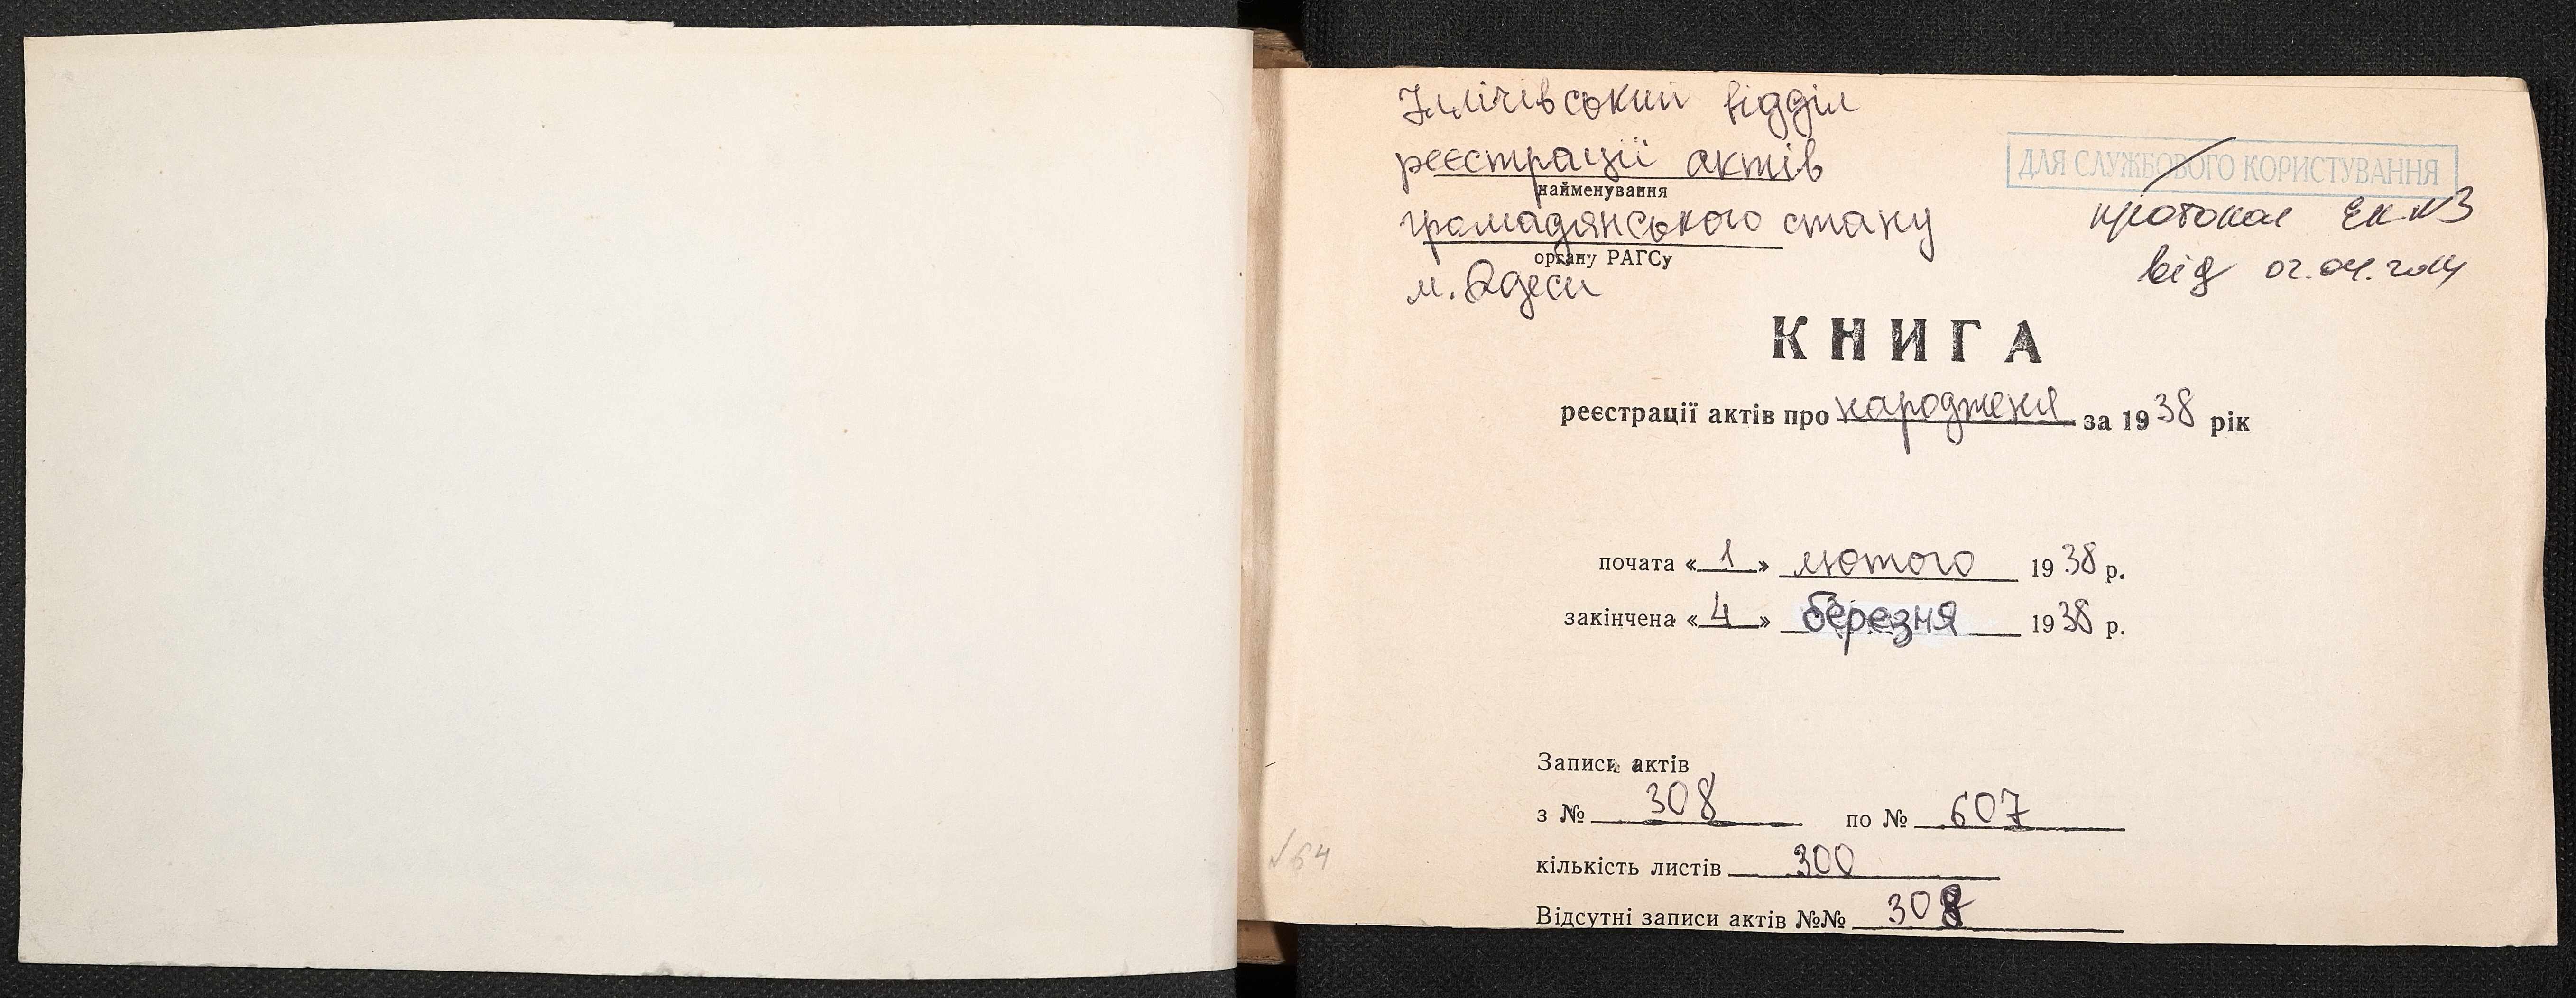 Іллічівський відділ
реєстрації актів
найменування
громадянського стану
органу РАГСу
м. Одеси
ДЛЯ СЛУЖБОВОГО КОРИСТУВАННЯ
протокол ЕК №3
від 02.04.2014
КНИГА
реєстрації актів про народженя за 1938 рік
почата «1» лютого 1938 р.
закінчена «4» березня 1938 р.
Записи актів
з № 308 по № 607
кількість листів 300
Відсутні записи актів №№ 308
√64